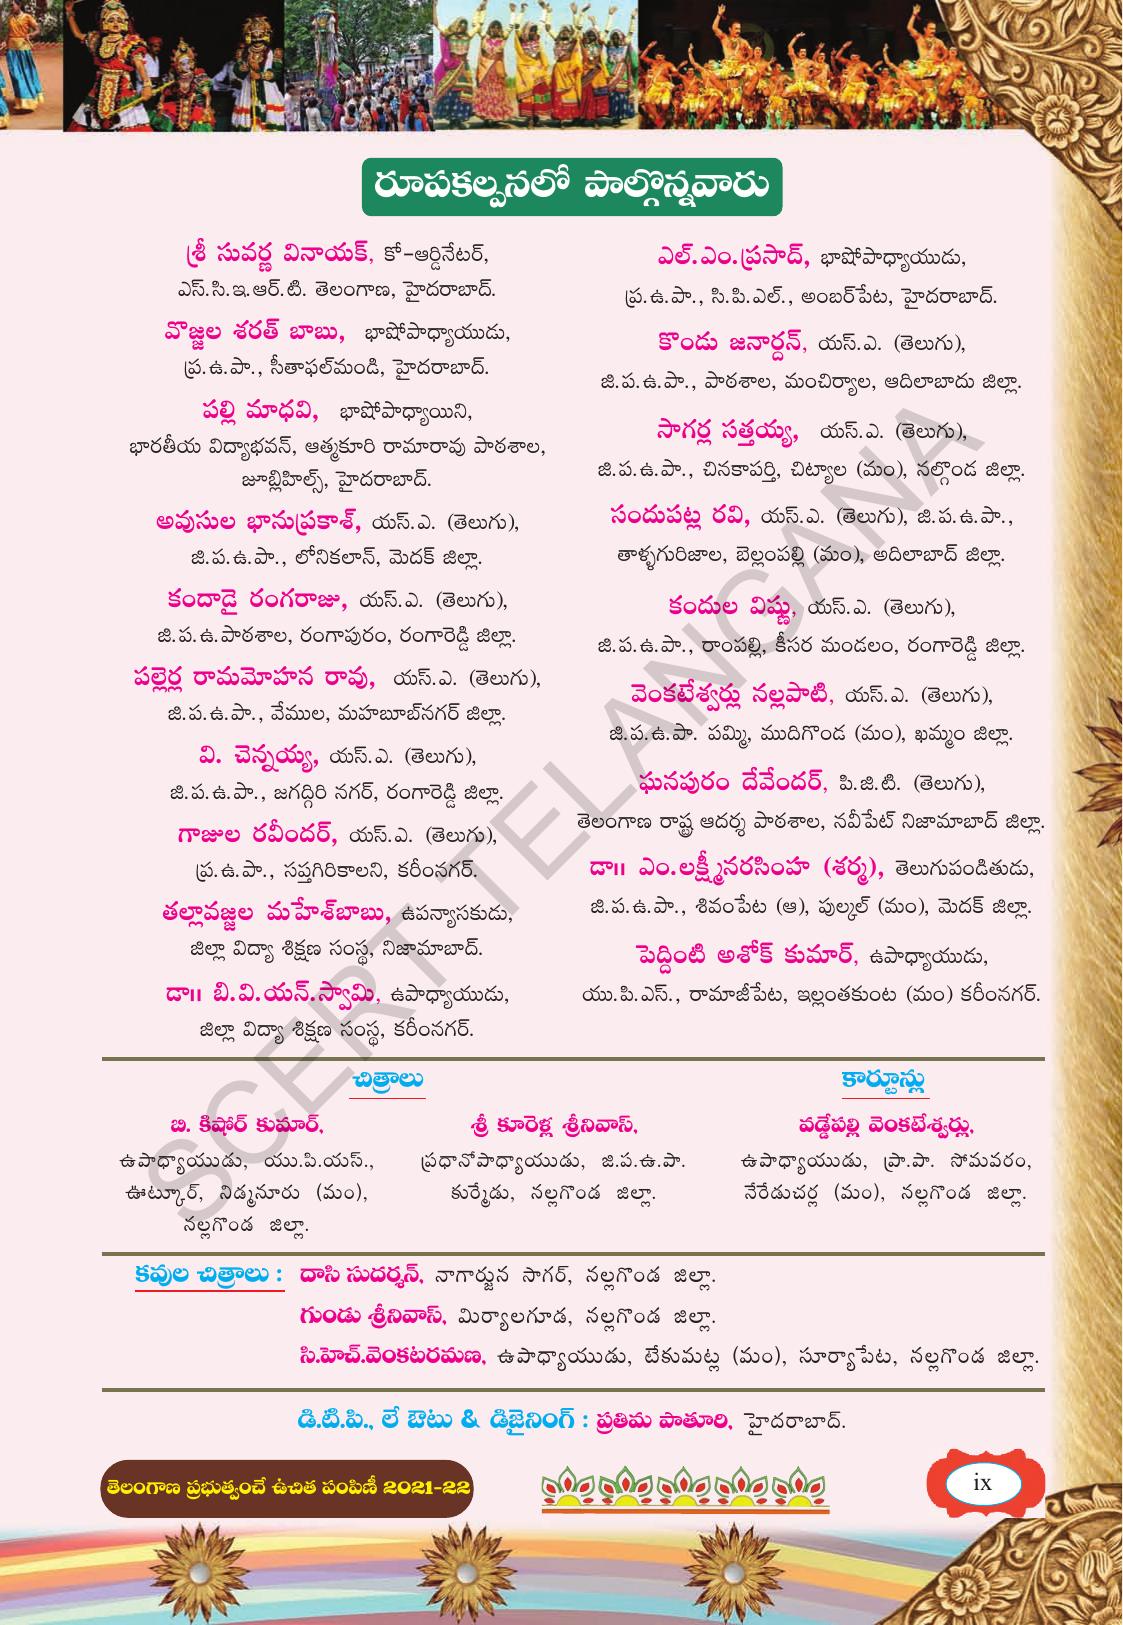 రూపకల్పనలో పాల్గొన్నవారు
శ్రీ సువర్ణ వినాయక్, కో-ఆర్డినేటర్,
ఎస్.సి.ఇ.ఆర్.టి. తెలంగాణ, హైదరాబాద్.
వొజ్జల శరత్ బాబు, భాషోపాధ్యాయుడు,
ప్ర.ఉ.పా., సీతాఫల్‌మండి, హైదరాబాద్.
పల్లి మాధవి, భాషోపాధ్యాయిని,
భారతీయ విద్యాభవన్, ఆత్మకూరి రామారావు పాఠశాల,
జూబ్లిహిల్స్, హైదరాబాద్.
అవుసుల భానుప్రకాశ్, యస్.ఎ. (తెలుగు),
జి.ప.ఉ.పా., లోనికలాన్, మెదక్ జిల్లా.
కందాడై రంగరాజు, యస్.ఎ. (తెలుగు),
జి.ప.ఉ.పాఠశాల, రంగాపురం, రంగారెడ్డి జిల్లా.
పల్లెర్ల రామమోహన రావు, యస్.ఎ. (తెలుగు),
జి.ప.ఉ.పా., వేముల, మహబూబ్‌నగర్ జిల్లా.
వి. చెన్నయ్య, యస్.ఎ. (తెలుగు),
జి.ప.ఉ.పా., జగద్గిరి నగర్, రంగారెడ్డి జిల్లా.
గాజుల రవీందర్, యస్.ఎ. (తెలుగు),
ప్ర.ఉ.పా., సప్తగిరికాలని, కరీంనగర్.
తల్లావజ్జల మహేశ్‌బాబు, ఉపన్యాసకుడు,
జిల్లా విద్యా శిక్షణ సంస్థ, నిజామాబాద్.
డా॥ బి.వి.యన్.స్వామి, ఉపాధ్యాయుడు,
జిల్లా విద్యా శిక్షణ సంస్థ, కరీంనగర్.
ఎల్.ఎం.ప్రసాద్, భాషోపాధ్యాయుడు,
ప్ర.ఉ.పా., సి.పి.ఎల్., అంబర్‌పేట, హైదరాబాద్.
కొండు జనార్దన్, యస్.ఎ. (తెలుగు),
జి.ప.ఉ.పా., పాఠశాల, మంచిర్యాల, ఆదిలాబాదు జిల్లా.
సాగర్ల సత్తయ్య, యస్.ఎ. (తెలుగు),
జి.ప.ఉ.పా., చినకాపర్తి, చిట్యాల (మం), నల్గొండ జిల్లా.
సందుపట్ల రవి, యస్.ఎ. (తెలుగు), జి.ప.ఉ.పా.,
తాళ్ళగురిజాల, బెల్లంపల్లి (మం), అదిలాబాద్ జిల్లా.
కందుల విష్ణు, యస్.ఎ. (తెలుగు),
జి.ప.ఉ.పా., రాంపల్లి, కీసర మండలం, రంగారెడ్డి జిల్లా.
వెంకటేశ్వర్లు నల్లపాటి, యస్.ఎ. (తెలుగు),
జి.ప.ఉ.పా. పమ్మి, ముదిగొండ (మం), ఖమ్మం జిల్లా.
ఘనపురం దేవేందర్, పి.జి.టి. (తెలుగు),
తెలంగాణ రాష్ట్ర ఆదర్శ పాఠశాల, నవీపేట్ నిజామాబాద్ జిల్లా.
డా॥ ఎం.లక్ష్మీనరసింహ (శర్మ), తెలుగుపండితుడు,
జి.ప.ఉ.పా., శివంపేట (ఆ), పుల్కల్ (మం), మెదక్ జిల్లా.
పెద్దింటి అశోక్ కుమార్, ఉపాధ్యాయుడు,
యు.పి.ఎస్., రామాజీపేట, ఇల్లంతకుంట (మం) కరీంనగర్.
SCERT TELANGANA
చిత్రాలు
బి. కిషోర్ కుమార్,
ఉపాధ్యాయుడు, యు.పి.యస్.,
ఊట్కూర్, నిడ్మనూరు (మం),
నల్లగొండ జిల్లా.
శ్రీ కూరెళ్ల శ్రీనివాస్,
ప్రధానోపాధ్యాయుడు, జి.ప.ఉ.పా.
కుర్మేడు, నల్లగొండ జిల్లా.
కార్టూన్లు
వడ్డేపల్లి వెంకటేశ్వర్లు,
ఉపాధ్యాయుడు, ప్రా.పా. సోమవరం,
నేరేడుచర్ల (మం), నల్లగొండ జిల్లా.
కవుల చిత్రాలు : దాసి సుదర్శన్, నాగార్జున సాగర్, నల్లగొండ జిల్లా.
గుండు శ్రీనివాస్, మిర్యాలగూడ, నల్లగొండ జిల్లా.
సి.హెచ్.వెంకటరమణ, ఉపాధ్యాయుడు, టేకుమట్ల (మం), సూర్యాపేట, నల్లగొండ జిల్లా.
డి.టి.పి., లే ఔటు & డిజైనింగ్ : ప్రతిమ పాతూరి, హైదరాబాద్.
తెలంగాణ ప్రభుత్వంచే ఉచిత పంపిణీ 2021-22
ix